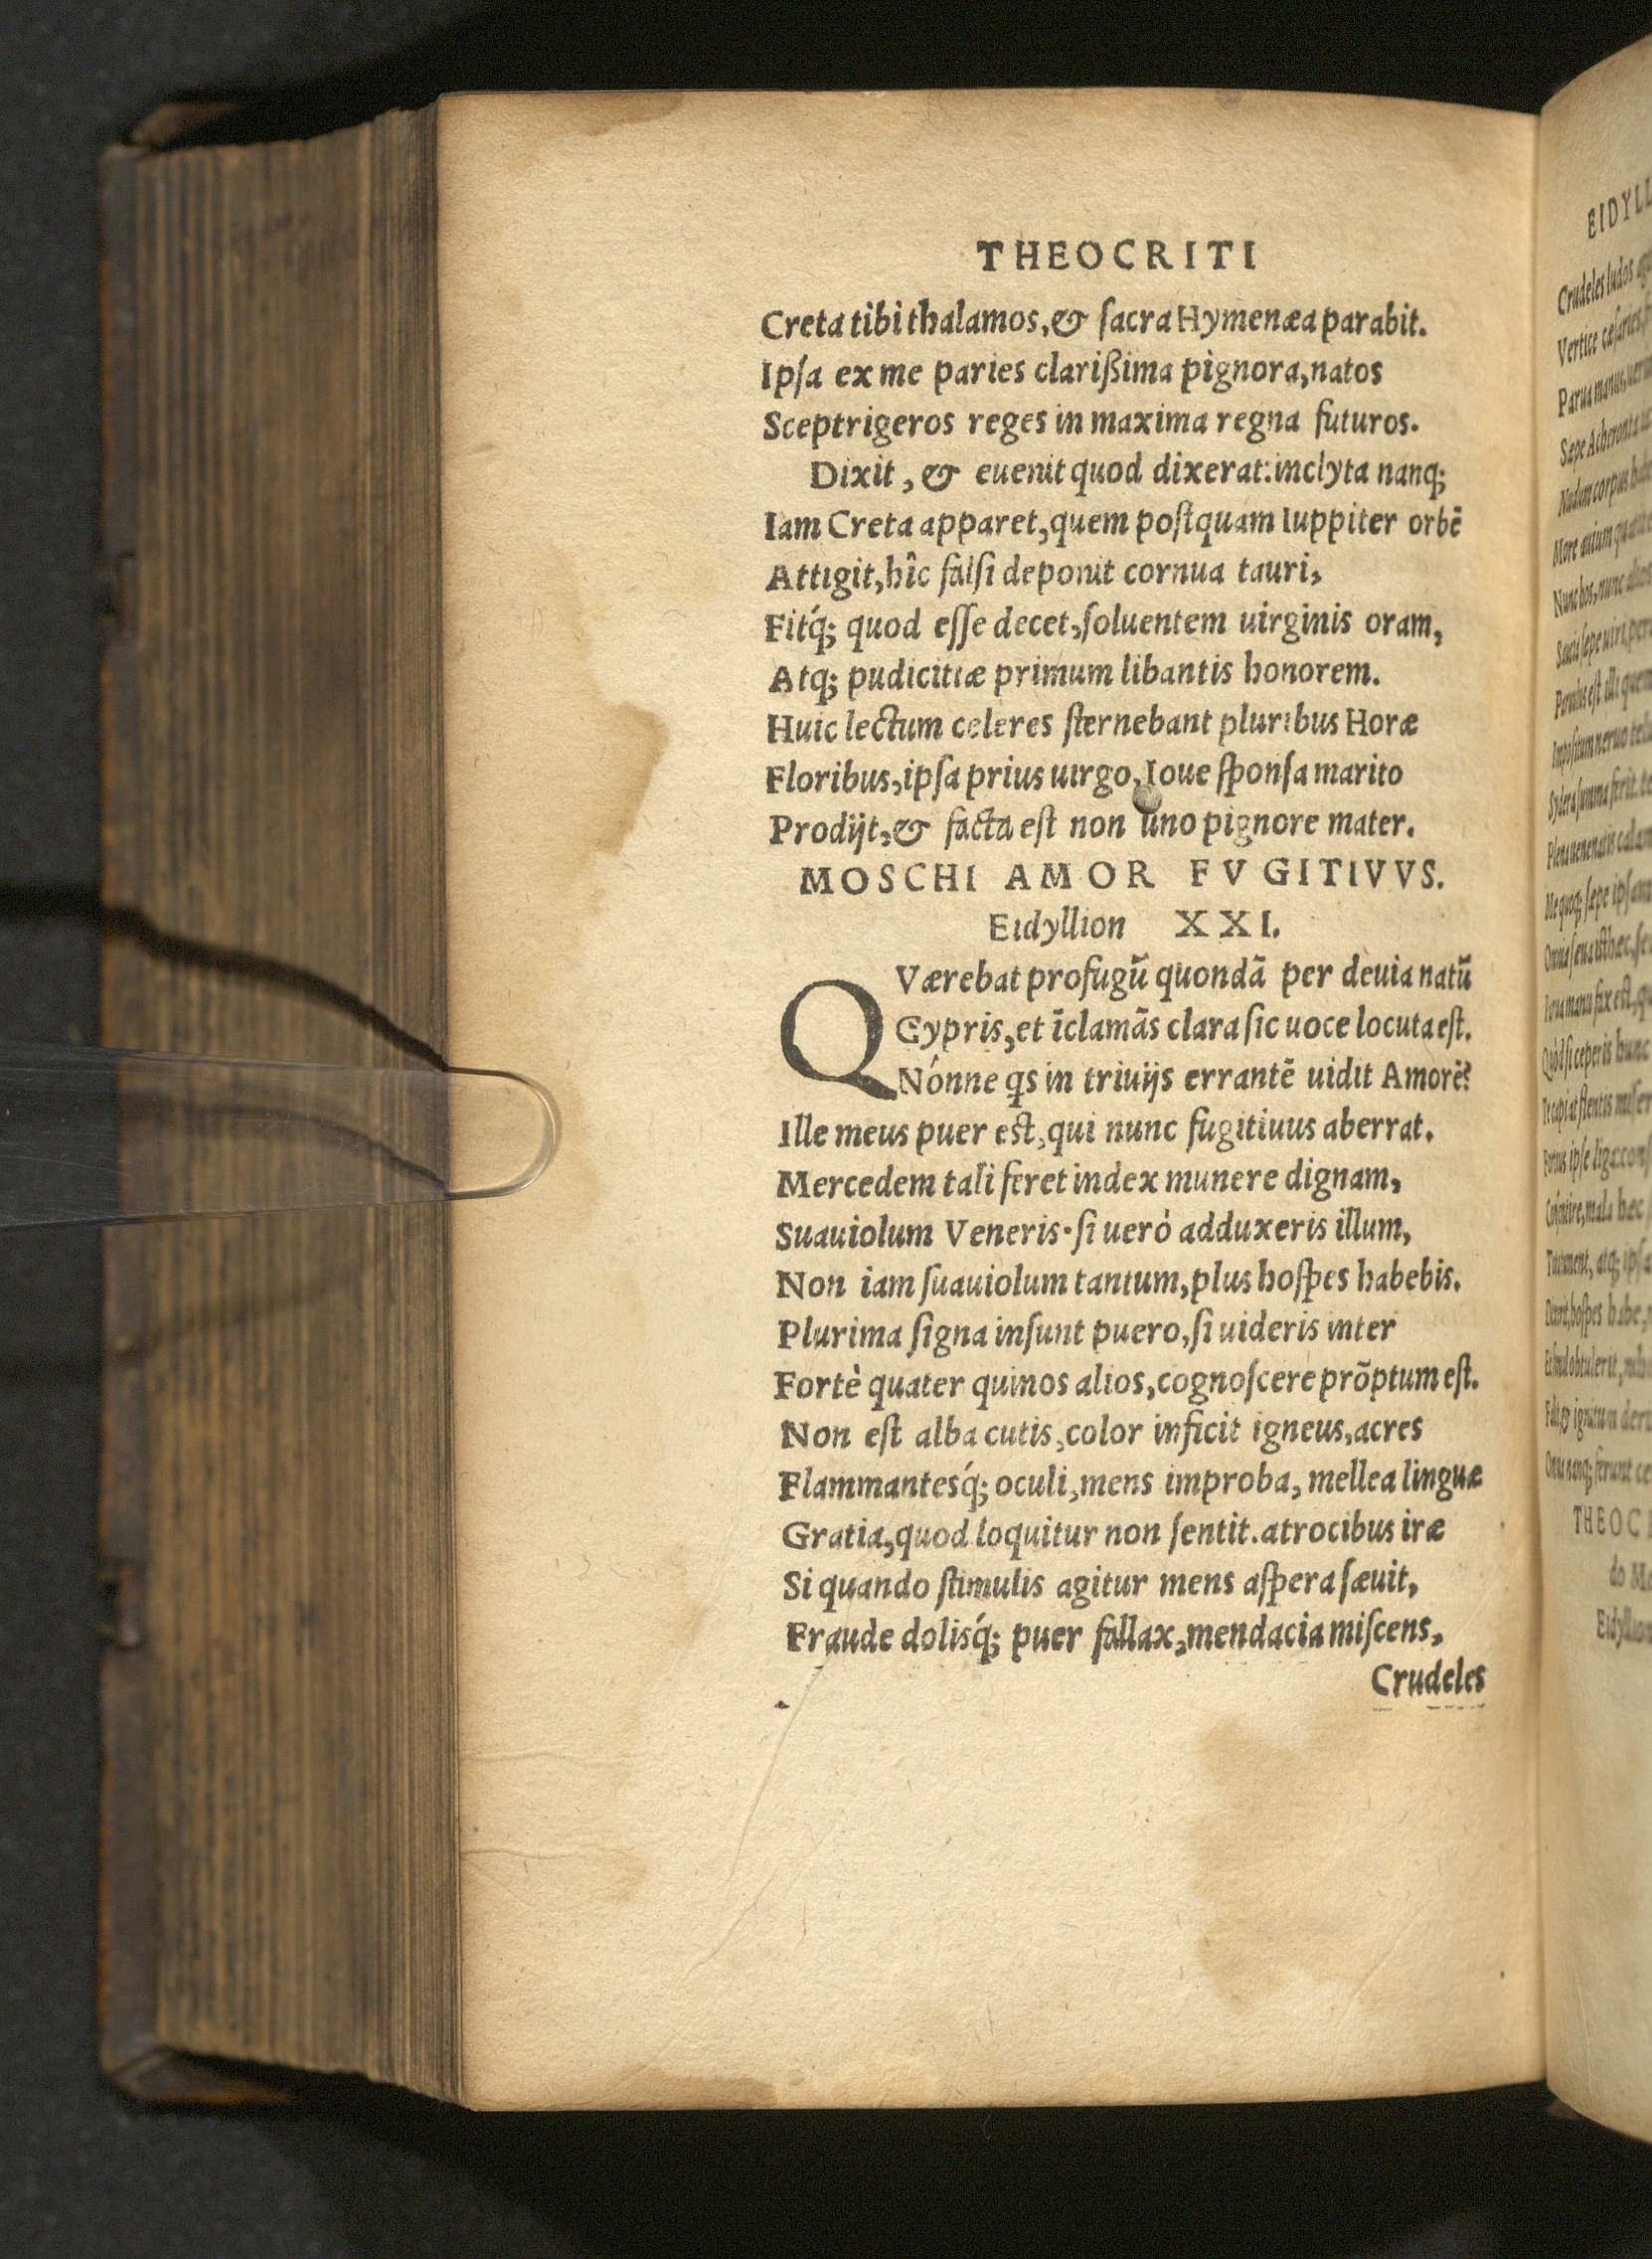 THEOCRITI
Creta tibi thalamos, & ſacra Hymenæa parabit.
Ipſa ex me paries clarißima pignora, natos
Sceptrigeros reges in maxima regna futuros.
Dixit, & euenit quod dixerat: inclyta nanq;
Iam Creta apparet, quem poſtquam Iuppiter orbē
Attigit, hîc falſi deponit cornua tauri,
Fitq́; quod eſſe decet, ſoluentem uirginis oram,
Atq; pudicitiæ primum libantis honorem.
Huic lectum celeres ſternebant pluribus Horæ
Floribus, ipſa prius uirgo, Ioue ſponſa marito
Prodijt, & facta eſt non uno pignore mater.
MOSCHI AMOR FVGITIVVS.
Eidyllion XXI.
QVærebat profugū quondā per deuia natū
Cypris, et īclamās clara ſic uoce locuta eſt.
Nónne qs in triuijs errantē uidit Amorē?
Ille meus puer eſt, qui nunc fugitiuus aberrat.
Mercedem tali feret index munere dignam,
Suauiolum Veneris. ſi uerò adduxeris illum,
Non iam ſuauiolum tantum, plus hoſpes habebis.
Plurima ſigna inſunt puero, ſi uideris inter
Fortè quater quinos alios, cognoſcere prōptum eſt.
Non eſt alba cutis, color inficit igneus, acres
Flammantesq́; oculi, mens improba, mellea linguæ
Gratia, quod loquitur non ſentit. atrocibus iræ
Si quando ſtimulis agitur mens aſpera ſæuit,
Fraude dolisq́; puer fallax, mendacia miſcens,
Crudeles
EIDYLL
Crudeles ludos
Vertice ceſaries
Parua manus,
Sæpe Acheronta
Nudum corpus
More auium
Nunc hos, nunc
THEOC
Eidyllion